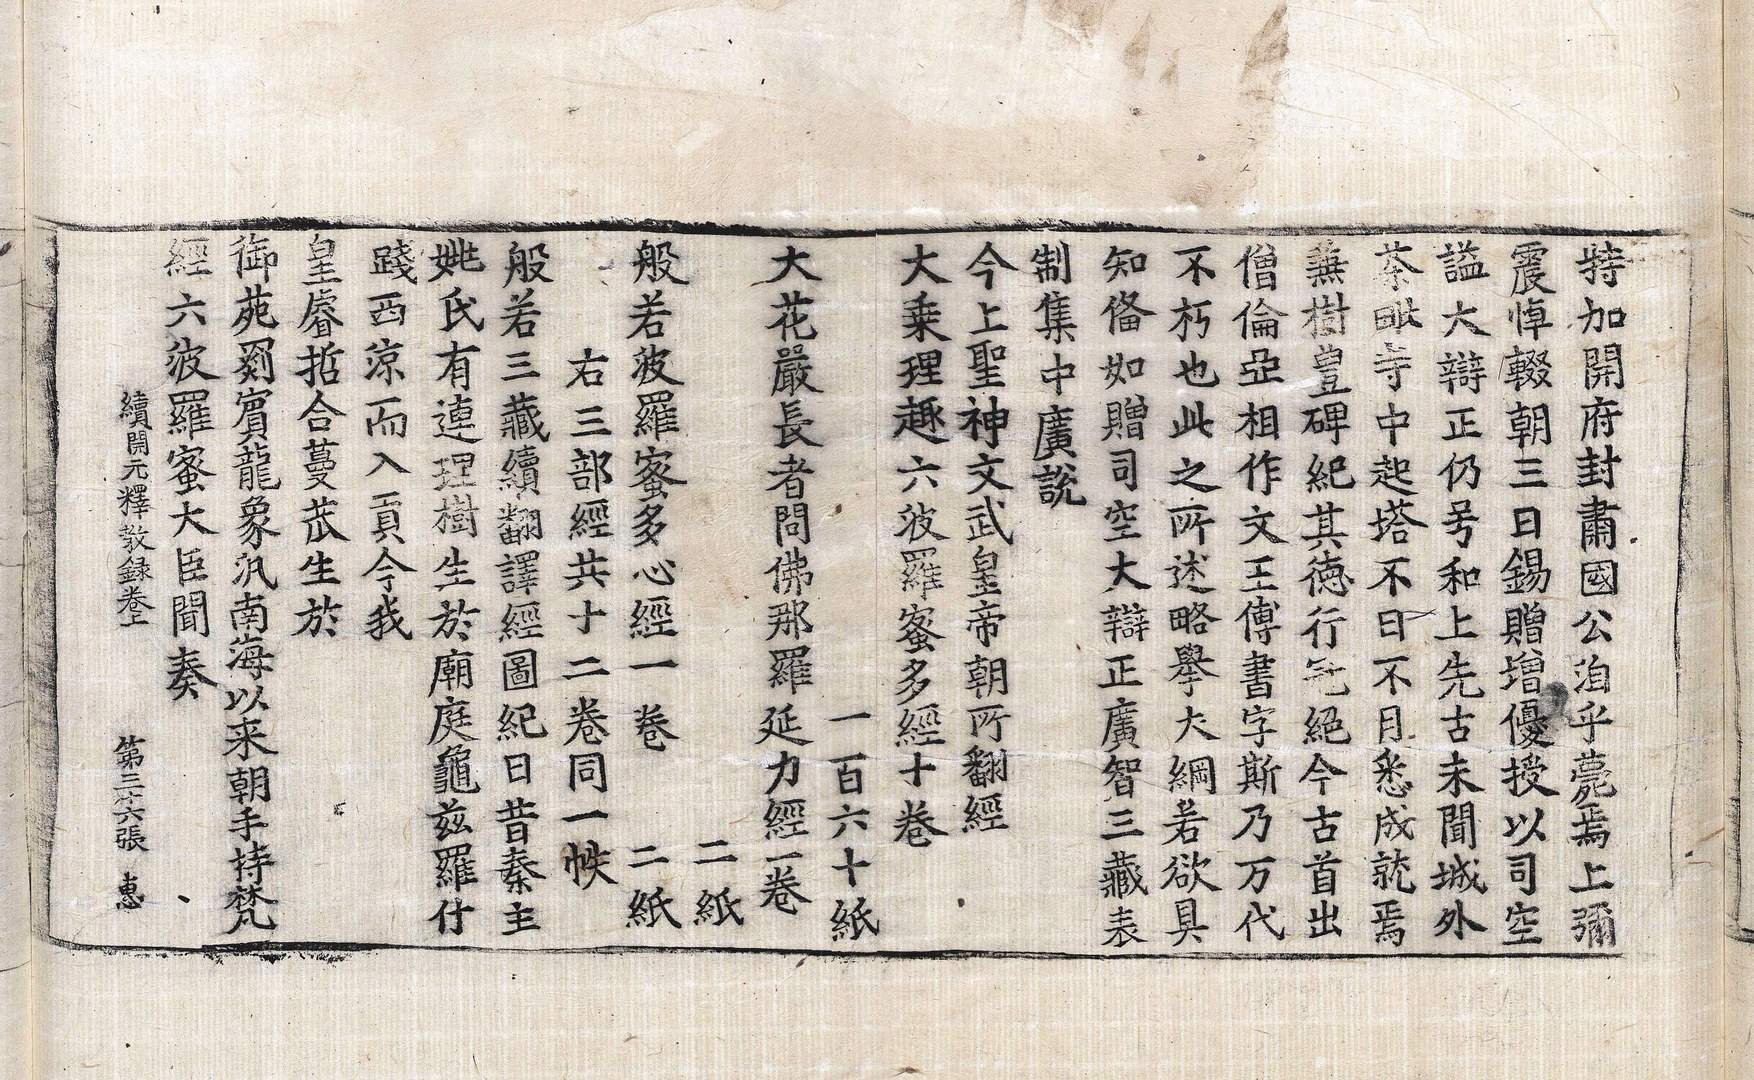 特加開府封肅國公洎乎薨焉上彌
震悼輟朝三日錫贈增優授以司空
謚大辯正仍号和上先古未聞城外
茶毗寺中起塔不日不月悉成就焉
兼樹豊碑紀其德行冠絕今古首出
僧倫亞相作文王傅書字斯乃万代
不朽也此之所述略舉大綱若欲具
知俻如贈司空大辯正廣智三藏表
制集中廣說
今上聖神文武皇帝朝所翻經
大乗理趣六波羅蜜多經十卷
一百六十紙
大花嚴長者問佛那羅延力經一卷
二紙
般若波羅蜜多心經一卷　二紙
右三部經共十二卷同一帙
般若三藏續翻譯經圖紀曰昔秦主
姚氏有連理樹生於廟庭龜玆羅什
踐西涼而入貢今我
皇睿哲合蔓茂生於
御苑罽賓龍象汎南海以来朝手持梵
經六波羅蜜大臣聞奏
續開元釋教録卷上　第三十六張　惠